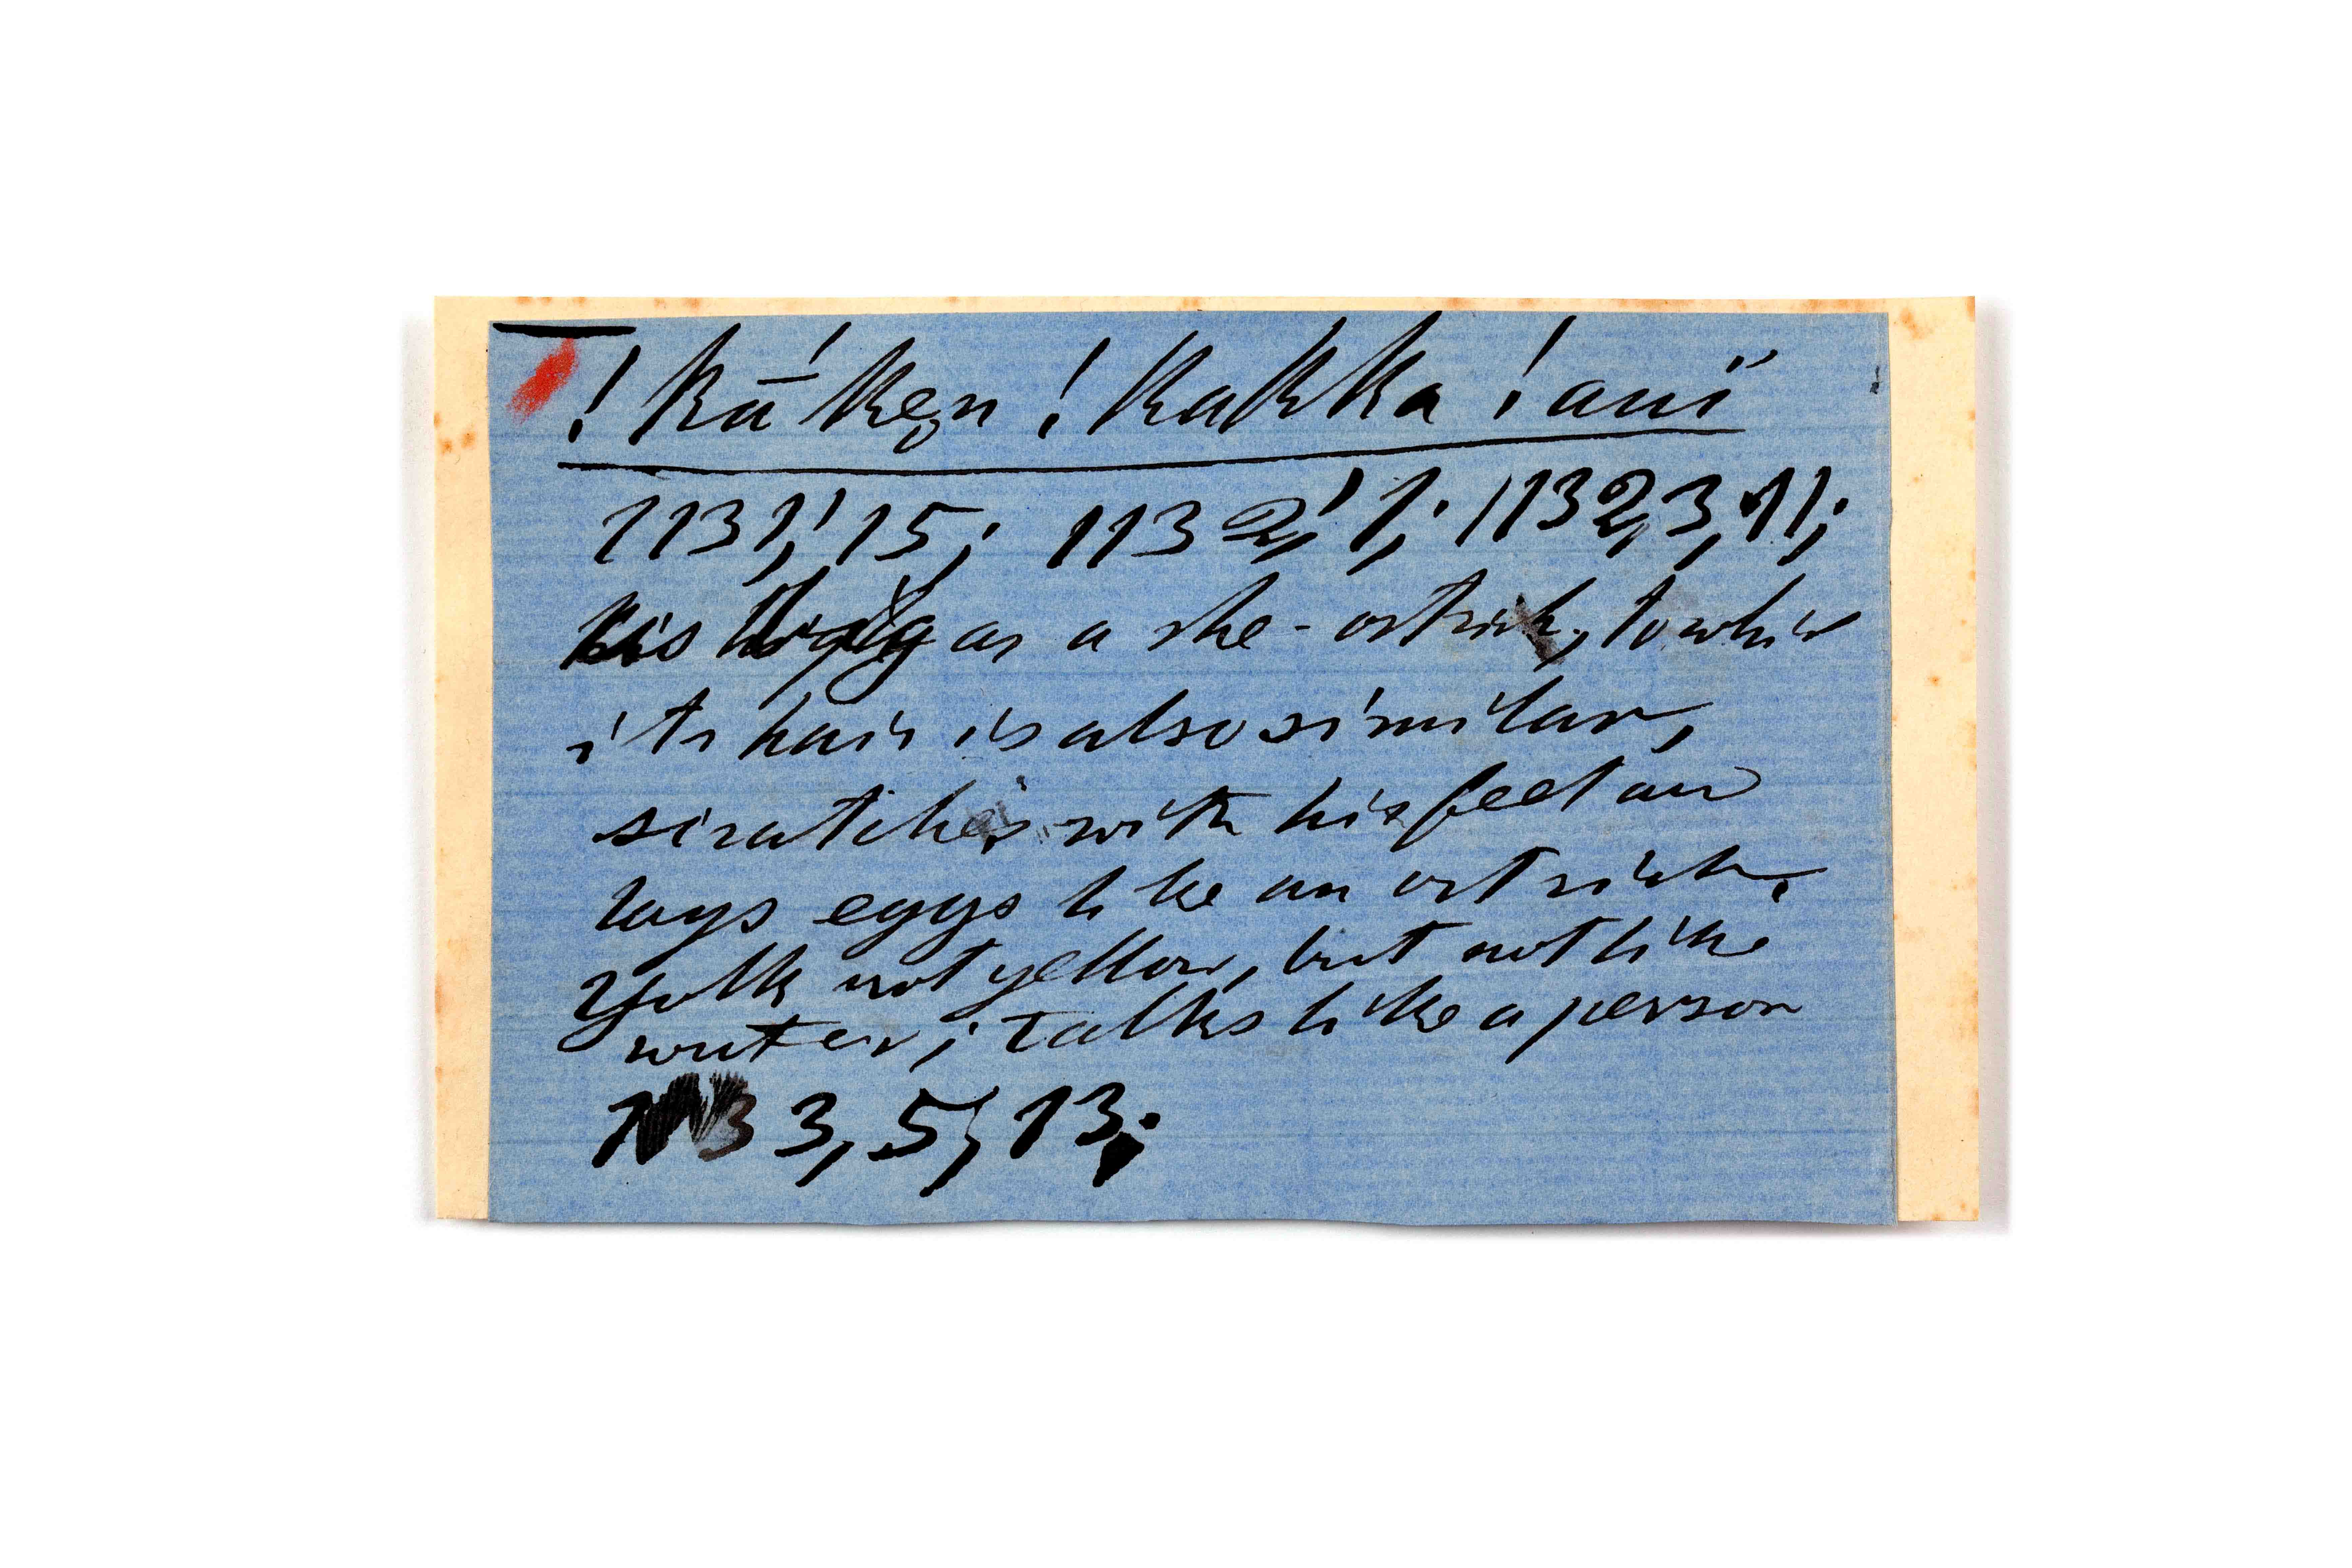 ! kā́ken ! kakka ! auï
1131,' 15; 1132,' 1; 1132, 3, 11;
as a she-ostrich, to which
its hair is also similar,
scratches with his feet and
lays eggs like an ostrich.
Yolk not yellow, but not like
water; talks like a person
3, 5, 13;